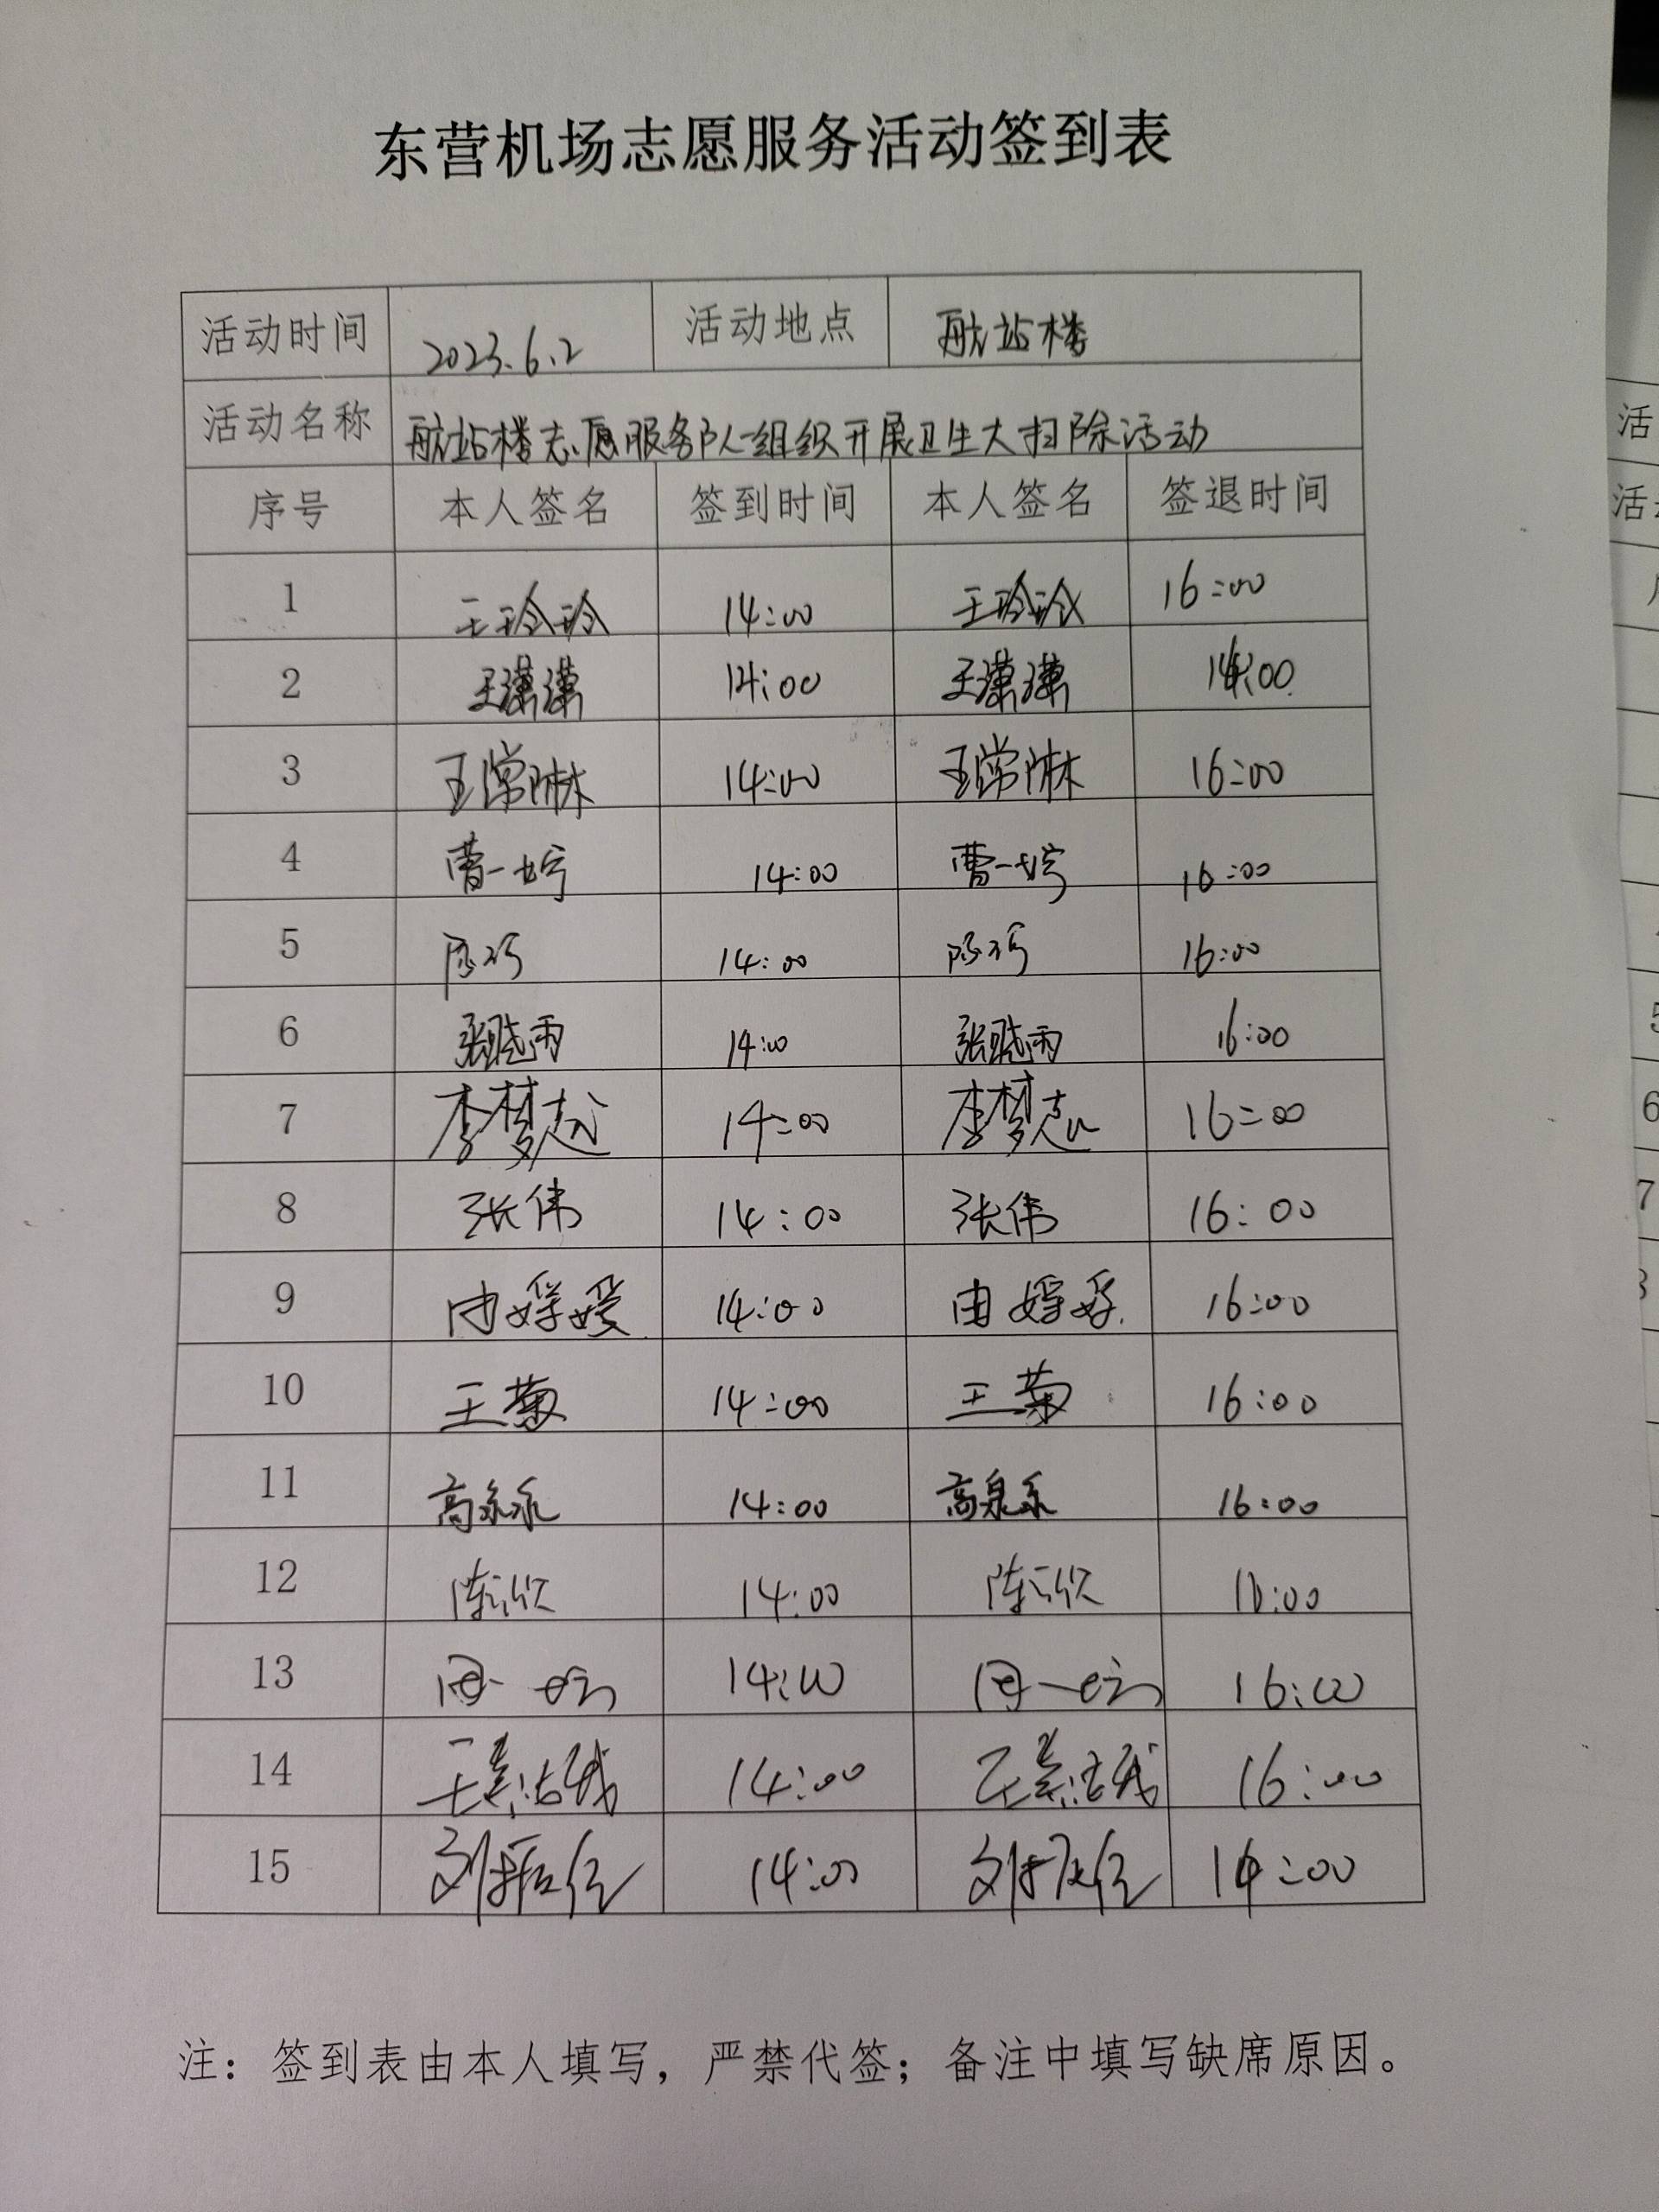 东营机场志愿服务活动签到表
活动时间 2023.6.2 活动地点 航站楼
活动名称 航站楼志愿服务队组织开展卫生大扫除活动
序号 本人签名 签到时间 本人签名 签退时间
1 王玲玲 14:00 王玲玲 16:00
2 王潇潇 14:00 王潇潇
3 王常琳 14:00 王常琳 16:00
4 曹一婷 14:00 曹一婷 16:00
5 陈巧 14:00 陈巧 16:00
6 张晓雨 14:00 张晓雨 16:00
7 李梦 14:00 李梦 16:00
8 张伟 14:00 张伟 16:00
9 由婷婷 14:00 由婷婷 16:00
10 王菊 14:00 王菊 16:00
11 高 14:00 高 16:00
12 陈欣 14:00 陈欣
13 周一 14:00 周一 16:00
14 王 14:00 王 16:00
15 刘振 14:00 刘振
注：签到表由本人填写，严禁代签；备注中填写缺席原因。
活
活
5
6
7